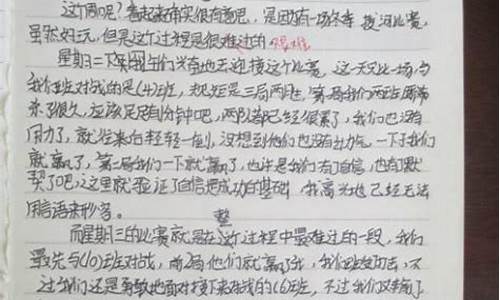 这个周吧？看起来确实很有意思，是因为有一场冬季拔河比赛，
虽然好玩，但是这个过程是很难过的 很难
星期二下午同学们兴奋地去迎接这个比赛，这一天又比一场与
我们班对战的是(4)班，规矩是三局两胜，第一局我们两班
来了很久，应该足足有1分钟吧，两队都已经很累了，我们也没有
用力了，就往来自轻轻一 没想到他们也没有力气，一下子我们
就赢了，第二局我们一下就赢了，也许是我们有了自信，也有了默
契了吧，这里就验证了自信是成功的基础，我高兴地已经无法
用言语来形容。
整
而星期三的比赛就是在这个过程中最难过的一段，我们
最先与(10)班对战，前2局他们就赢了我，我们 不
过我们还是勇敢地面对接下来对战的(6)班，不过我们又输了